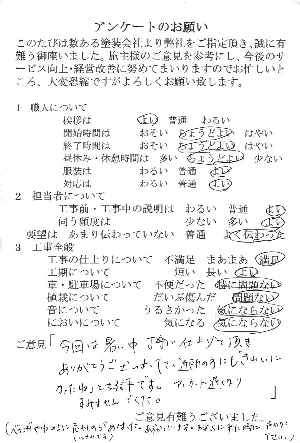 アンケートのお願い
このたびは数ある塗装会社より弊社をご指定頂き、誠に有
難う御座いました。施主様のご意見を参考にし、今後のサ
ービス向上・経営改善に努めてまいりますのでお忙しいと
ころ、大変恐縮ですがよろしくお願い致します。
1 職人について
挨拶は よい 普通 わるい
開始時間は おそい ちょうどよい はやい
終了時間は おそい ちょうどよい はやい
昼休み・休憩時間は 多い ちょうどよい 少ない
服装は わるい 普通 よい
対応は わるい 普通 よい
2 担当者について
工事前・工事中の説明は わるい 普通 よい
伺う頻度は 少ない 多い よい
要望は あまり伝わっていない 普通 よく伝わった
3 工事全般
工事の仕上りについて 不満足 まあまあ 満足
工期について 短い 長い よい
車・駐車場について 不便だった 特に問題ない
植栽について だいぶ傷んだ 問題ない
音について うるさかった 気にならない
においについて 気になる 気にならない
ご意見「今回は暑い中、丁寧に仕上げて頂き
ありがとうございました。近所の方にもきれいに
なったねと好評です。アンケート遅くなり
すみませんでした。」
ご意見有難うございました。